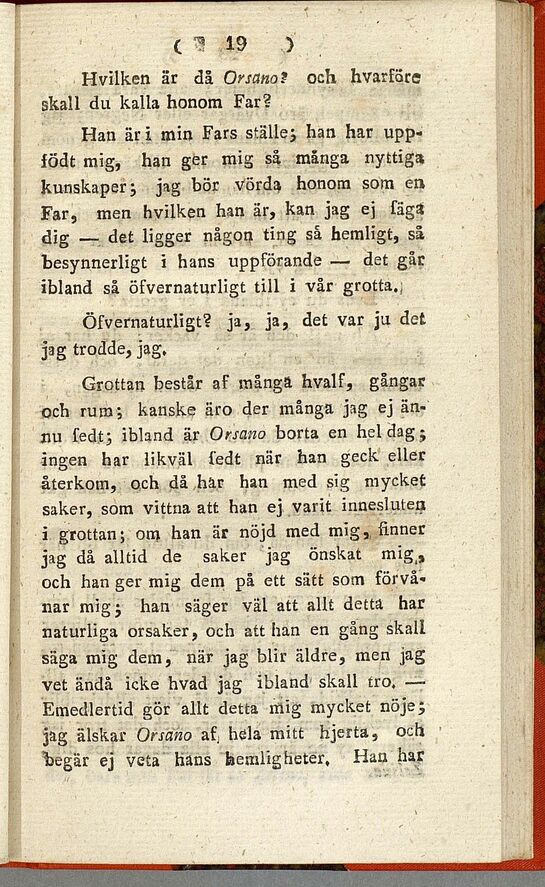 ( 19 )
Hvilken är då Orsano? och hvarföre
skall du kalla honom Far?
Han är i min Fars ställe; han har upp-
födt mig, han ger mig så många nyttiga
kunskaper; jag bör vörda honom som en
Far, men hvilken han är, kan jag ej säga
dig — det ligger någon ting så hemligt, så
besynnerligt i hans uppförande — det går
ibland så öfvernaturligt till i vår grotta.
Öfvernaturligt? ja, ja, det var ju det
jag trodde, jag.
Grottan består af många hvalf, gångar
och rum; kanske äro der många jag ej än-
nu sedt; ibland är Orsano borta en hel dag;
ingen har likväl sedt när han geck eller
återkom, och då har han med sig mycket
saker, som vittna att han ej varit innesluten
i grottan; om han är nöjd med mig, finner
jag då alltid de saker jag önskat mig,
och han ger mig dem på ett sätt som förvå-
nar mig; han säger väl att allt detta har
naturliga orsaker, och att han en gång skall
säga mig dem, när jag blir äldre, men jag
vet ändå icke hvad jag ibland skall tro. —
Emedlertid gör allt detta mig mycket nöje;
jag älskar Orsano af hela mitt hjerta, och
begär ej veta hans hemligheter. Han har